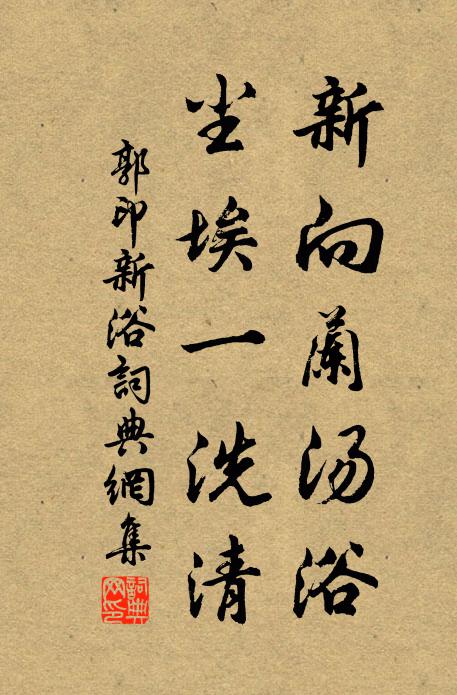 新向蘭汤浴
尘埃一洗清
郭印新浴詞典網集
詞典網印